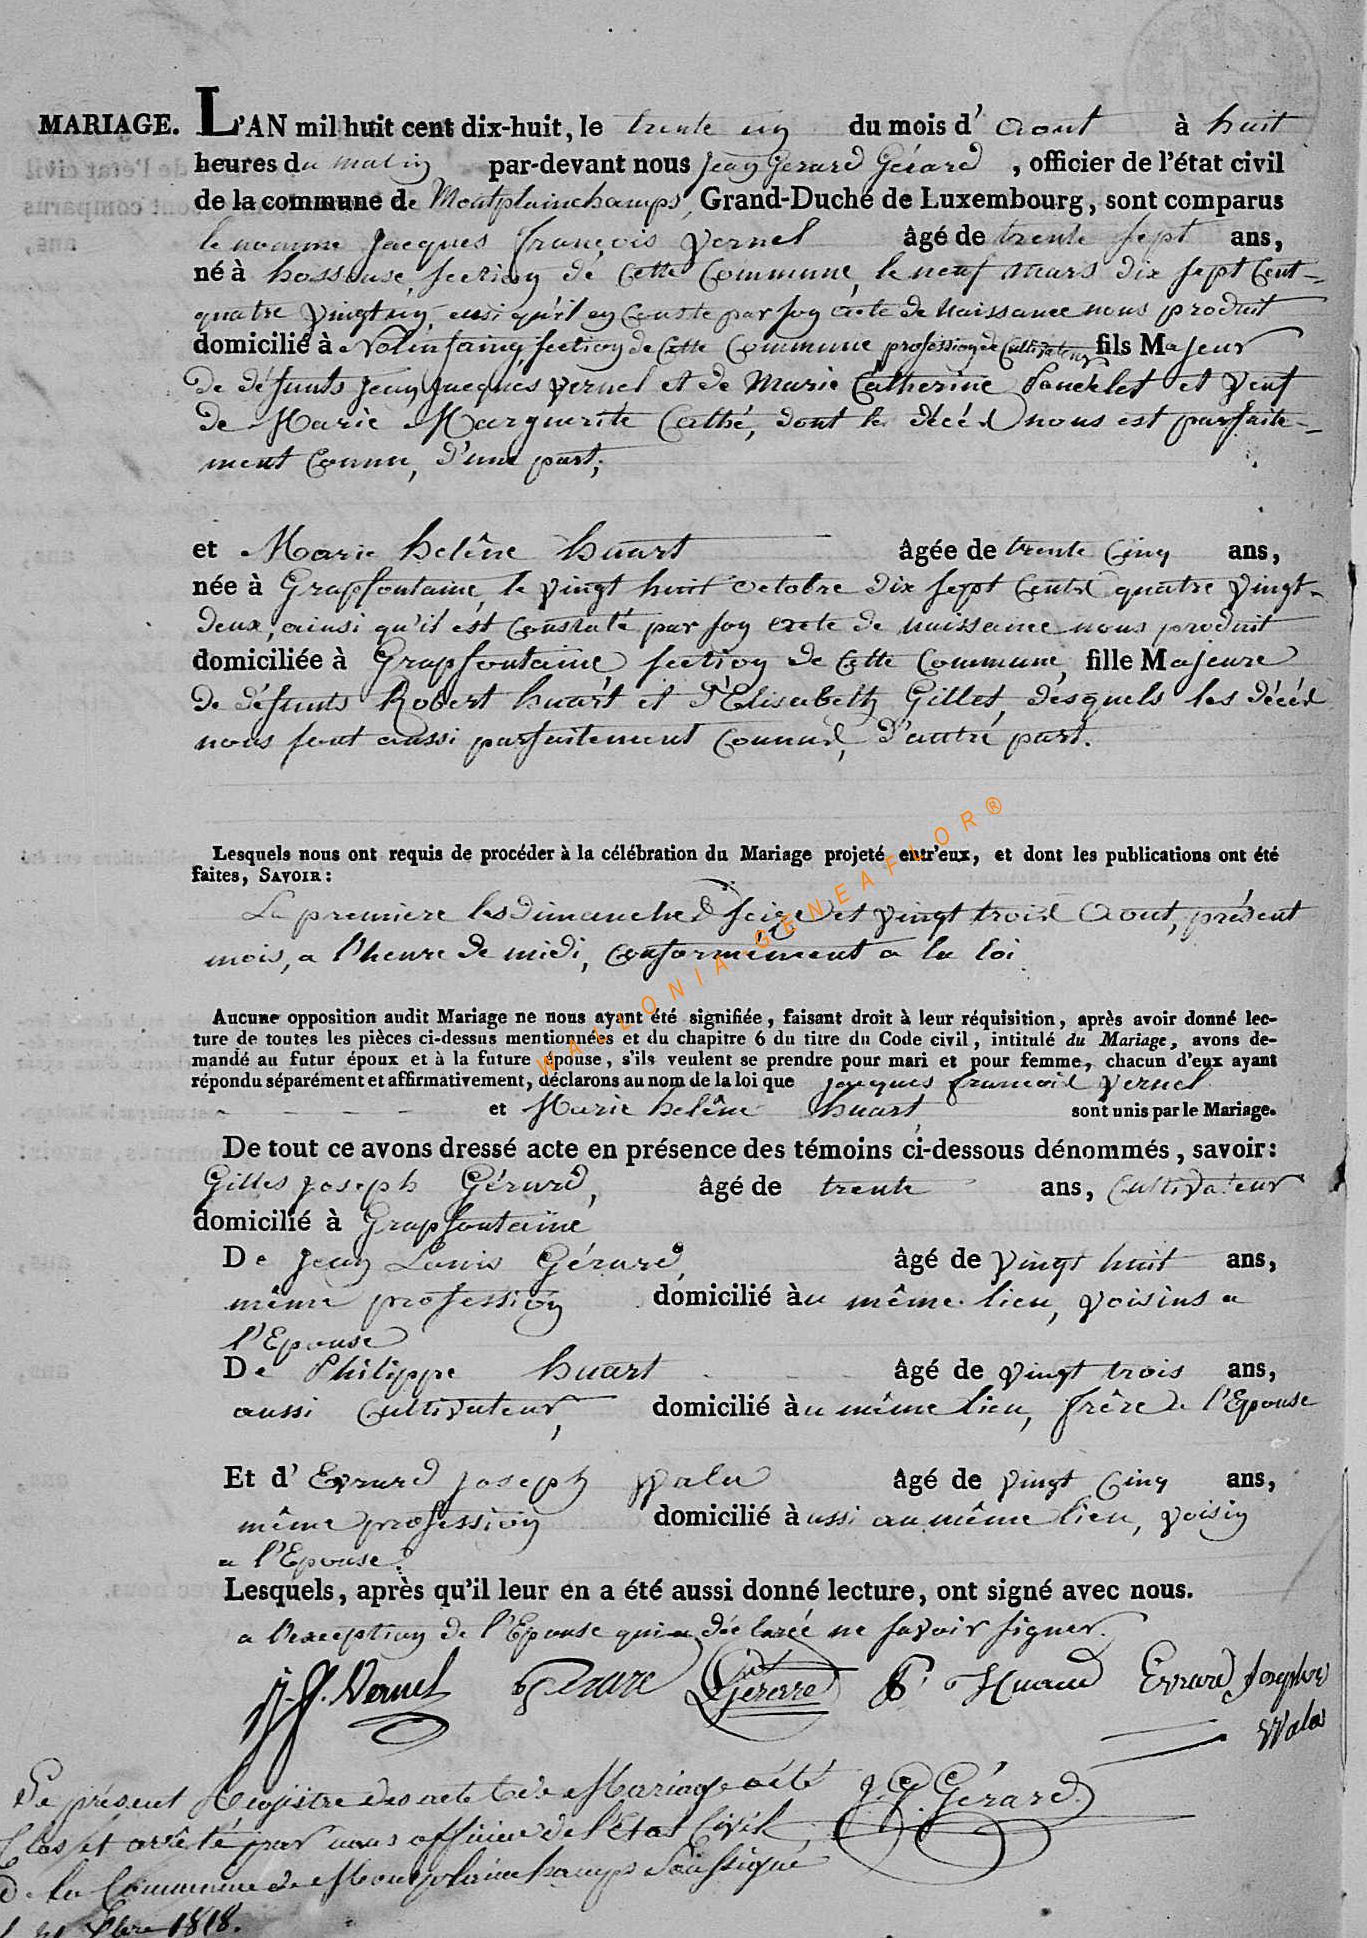 MARIAGE. L'AN mil huit cent dix-huit, le trente un du mois d' Aout à huit
heures du matin par-devant nous Jean Gerard Gérard , officier de l'état civil
de la commune de Montplainchamps, Grand-Duché de Luxembourg, sont comparus
le nommé Jacques françois Vernel âgé de trente sept ans,
né à hosseuse, section de Cette Commune, le neuf Mars dix sept Cent-
quatre Vingt un, ensi qu'il en Conste par son acte de Naissance nous produit
domicilié à Nolinfaing section de Cette Commune profession de Cultivateur fils Majeur
de défunts Jean Jacques Vernel et de Marie Catherine Poncelet et Veuf
de Marie Marguerite Cathé, dont le décéd nous est parfaite-
ment Connu, d'une part;
et Marie helêne huart âgée de trente Cinq ans,
née à Grapfontaine, le Vingt huit octobre dix sept Cents quatre Vingt-
deux, ainsi qu'il est Constaté par son acte de naissance nous produit
domiciliée à Grapfontaine section de Cette Commune, fille Majeure
de défunts Robert huart et d'Elisabeth Gillet, desquels les décéd
nous sont aussi parfaitement Connus, d'autre part.
Lesquels nous ont requis de procéder à la célébration du Mariage projeté entr'eux, et dont les publications ont été
faites, SAVOIR :
La premiere les dimanches seize et Vingt trois Aout, présent
mois, a l'heure de midi, Conformément a la loi
Aucune opposition audit Mariage ne nous ayant été signifiée, faisant droit à leur réquisition, après avoir donné lec-
ture de toutes les pièces ci-dessus mentionnées et du chapitre 6 du titre du Code civil, intitulé du Mariage, avons de-
mandé au futur époux et à la future épouse, s'ils veulent se prendre pour mari et pour femme, chacun d'eux ayant
répondu séparément et affirmativement, déclarons au nom de la loi que Jacques françois Vernel
et Marie helêne huart sont unis par le Mariage.
De tout ce avons dressé acte en présence des témoins ci-dessous dénommés, savoir :
Gilles Joseph Gérard, âgé de trente ans, Cultivateur
domicilié à Grapfontaine
De Jean Louis Gérard, âgé de Vingt huit ans,
même profession domicilié au même lieu, Voisins a
l'Epouse
De Philippe huart âgé de Vingt trois ans,
aussi Cultivateur, domicilié au même lieu, frère de l'Epouse
Et d' Evrard Joseph Wala âgé de Vingt Cinq ans,
même profession domicilié aussi au même lieu, Voisin
a l'Epouse.
Lesquels, après qu'il leur en a été aussi donné lecture, ont signé avec nous.
a l'exception de l'Epouse qui a déclaréé ne savoir signer.
J. f. Vernel Gerard Gérard P. Huard Evrard Joseph
Wala
Le présent Registre des actes de Mariage a été J. G. Gérard.
Clos et arrêté par nous officier de l'Etat Civil
de la Commune de Montplainchamps Soussigné
1818.
WALLONIA-GENEAFLOR®